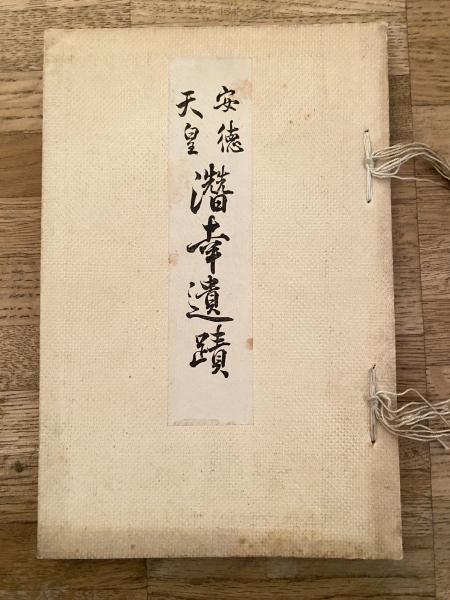 安徳
天皇
潛幸遺蹟